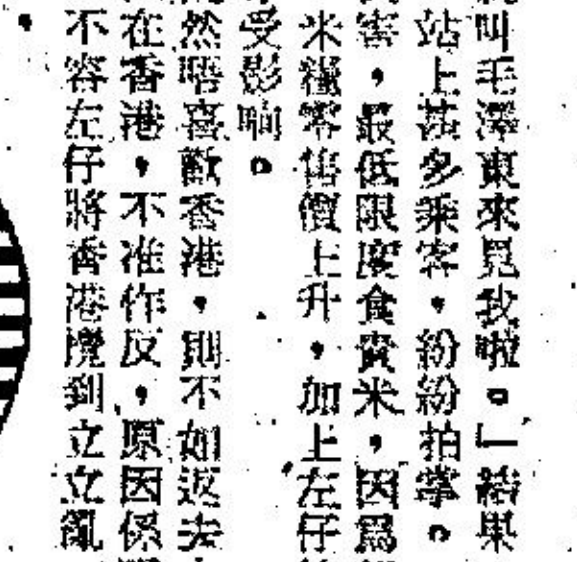 叫毛澤東來見我啦。」結果
站上甚多乘客,紛紛拍掌。
害,最低限度食貴米,因爲
米糧零售價上升,加上左仔
受影响。
然唔喜歡香港,則不如返去
在香港,不准作反,原因係
不容左仔將香港攪到立立亂